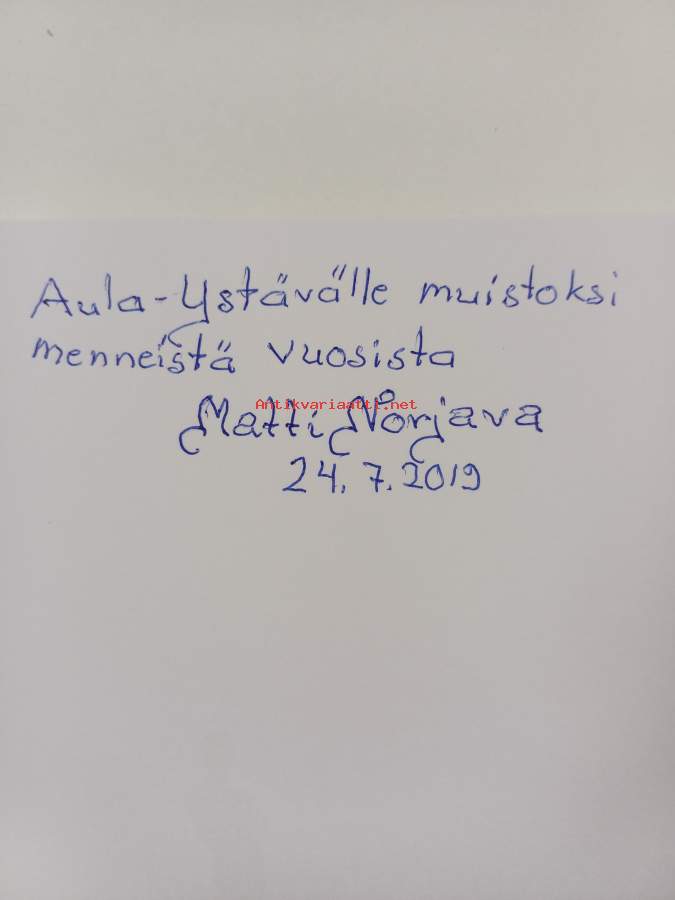 Aula-Ystävälle muistoksi
menneistä vuosista
Antikvariaatti.net
Matti Norjava
24.7.2019